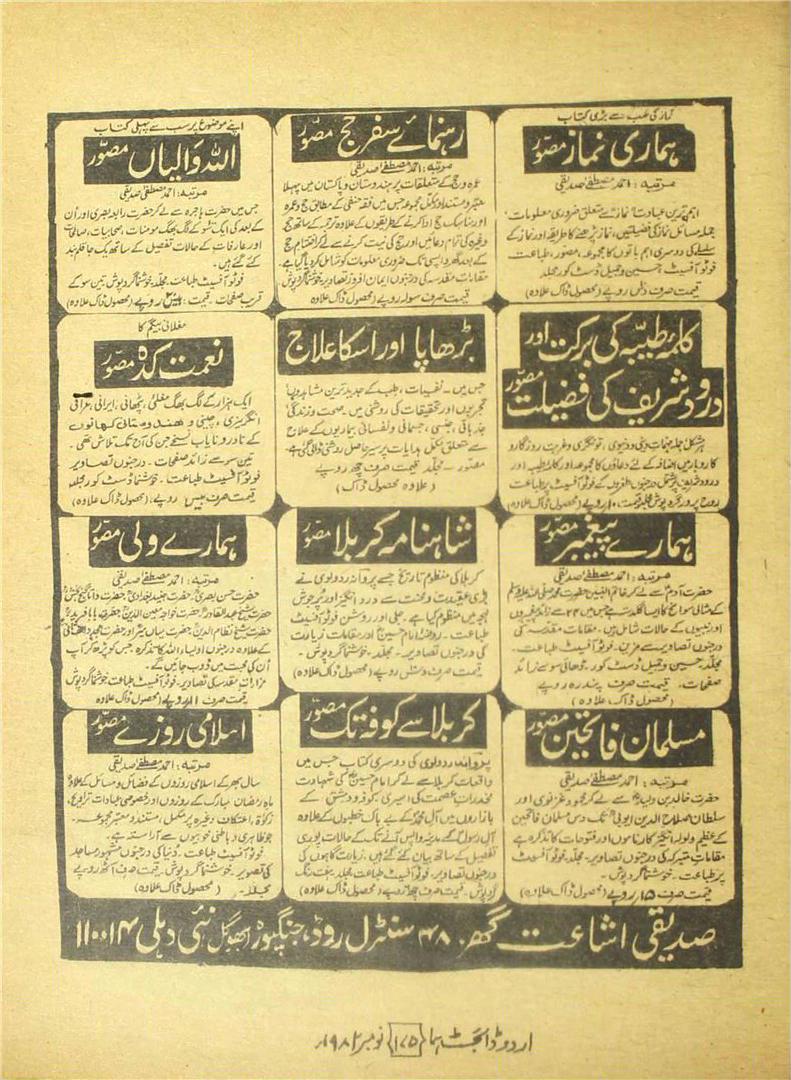 نماز کی سب سے بڑی کتاب
ہماری نماز مصوّر
مرتبہ: احمد مصطفےٰ صدیقی
اہم ترین عبادت "نماز" سے متعلق ضروری معلومات،
جملہ مسائل نماز کی فضیلتیں، نماز پڑھنے کا طریقہ اور نماز کے
سلسلے کی دوسری اہم باتوں کا مجموعہ، مصور، طباعت
فوٹو آفسیٹ، حسین و جمیل ڈسٹ کور مجلد
قیمت صرف دس روپے (محصول ڈاک علاوہ)
رہنمائے سفر حج مصوّر
مرتبہ: احمد مصطفےٰ صدیقی
عمرہ و حج کے متعلقات پر ہندوستان و پاکستان میں پہلا
معتبر و مستند اور مکمل مجموعہ جس میں فقہ حنفی کے مطابق حج و عمرہ
اور مناسک حج ادا کرنے کے طریقوں کے علاوہ ترجمہ کے ساتھ حج
وغیرہ کی تمام دعائیں اور حج کی نیت کرنے سے لے کر اختتام حج
کے بعد گھر واپسی تک ضروری معلومات کو شامل کر دیا گیا ہے۔
مقامات مقدسہ کی درجنوں ایمان افروز تصاویر، خوشنما گرد پوش
قیمت صرف سولہ روپے (محصول ڈاک علاوہ)
اپنے موضوع پر سب سے پہلی کتاب
اللہ والیاں مصوّر
مرتبہ: احمد مصطفےٰ صدیقی
جس میں حضرت ہاجرہ سے لے کر حضرت رابعہ بصری اور اُن
کے بعد کی ایک سو کے لگ بھگ مومنات، صحابیات، صالحات
اور عارفات کے حالات تفصیل کے ساتھ یک جا قلم بند
کئے گئے ہیں۔
فوٹو آفسیٹ طباعت، مجلد، خوشنما گرد پوش تین سو کے
قریب صفحات۔ قیمت: بیس روپے (محصول ڈاک علاوہ)
کلمۂ طیبّہ کی برکت اور
درود شریف کی فضیلت مصوّر
ہر مشکل جملہ مہمات دینی و دنیوی، تونگری و غربت روزگار و
کاروبار میں اضافہ کے لئے دعاؤں کا مجموعہ اور کلمۂ طیبہ اور
درود شریف پر مشتمل درجنوں طغروں کے فوٹو آفسیٹ پر طباعت
روح پرور گرد پوش مجلد قیمت ۱۰ روپے (محصول ڈاک علاوہ)
بڑھاپا اور اسکا علاج
جس میں۔ نفسیات، طب کے جدید ترین مشاہدوں
تجربوں اور تحقیقات کی روشنی میں، صحت و زندگی
جذباتی، جنسی، جسمانی و نفسانی بیماریوں کے علاج
سے متعلق مکمل ہدایات پر سیر حاصل روشنی ڈالی گئی ہے۔
مصور۔ مجلد قیمت صرف چھ روپے
(علاوہ محصول ڈاک)
مغلانی بیگم کا
نعمت کدہ مصوّر
ایک ہزار کے لگ بھگ مغلئی، پٹھانی، ایرانی، عراقی
انگریزی، چینی و ہندوستانی کھانوں
کے نادر و نایاب نسخے جن کی آج تک تلاش تھی۔
تین سو سے زائد صفحات۔ درجنوں تصاویر
فوٹو آفسیٹ طباعت۔ خوشنما ڈسٹ کور مجلد
قیمت صرف بیس روپے (محصول ڈاک علاوہ)
ہمارے پیغمبر مصوّر
مرتبہ: احمد مصطفےٰ صدیقی
حضرت آدمؑ سے لے کر خاتم النبیین حضرت محمد صلی اللہ علیہ وسلم
کے مثالی سوانح کا ایسا گلدستہ ہے جس میں ۲۳ سے زائد پیغمبروں
اور نبیوں کے حالات شامل ہیں۔ مقامات مقدسہ کی
درجنوں تصاویر سے مزین۔ فوٹو آفسیٹ طباعت۔
مجلد، حسین و جمیل ڈسٹ کور۔ ڈھائی سو سے زائد
صفحات۔ قیمت صرف پندرہ روپے
(محصول ڈاک علاوہ)
شاہنامہ کربلا مصوّر
کربلا کی منظوم تاریخ جسے پروانہ ردولوی نے
بڑی عقیدت و محنت سے درد انگیز اور پُر جوش
لہجہ میں منظوم کیا ہے۔ جلی اور روشن فوٹو آفسیٹ
طباعت۔ روضۂ امام حسینؑ اور مقامات زیارت
کی درجنوں تصاویر۔ مجلد۔ خوشنما گرد پوش۔
قیمت صرف دس روپے (محصول ڈاک علاوہ)
ہمارے ولی مصوّر
مرتبہ: احمد مصطفےٰ صدیقی
حضرت حسن بصریؒ، حضرت جنید بغدادیؒ، حضرت داتا گنج بخشؒ
حضرت شیخ عبدالقادرؒ، حضرت خواجہ معین الدینؒ، حضرت بابا فریدؒ
حضرت شیخ نظام الدینؒ، حضرت میاں میرؒ اور حضرت مجدد الف ثانیؒ
کے علاوہ درجنوں اولیاء اللہ کا تذکرہ، جس کو پڑھ کر آپ
اُن کی محبت میں ڈوب جائیں گے۔
مزارات مقدسہ کی تصاویر۔ فوٹو آفسیٹ طباعت خوشنما گرد پوش
قیمت صرف ۱۸ روپے (محصول ڈاک علاوہ)
مسلمان فاتحین مصوّر
مرتبہ: احمد مصطفےٰ صدیقی
حضرت خالد بن ولیدؓ سے لے کر محمود غزنوی اور
سلطان صلاح الدین ایوبیؒ تک دس مسلمان فاتحین
کے عظیم ولولہ انگیز کارناموں اور فتوحات کا تذکرہ ہے
مقامات متبرکہ کی درجنوں تصاویر۔ مجلد، فوٹو آفسٹ
پر طباعت۔ خوشنما گرد پوش۔
قیمت صرف ۱۵ روپے (محصول ڈاک علاوہ)
کربلا سے کوفہ تک مصوّر
پروانہ ردولوی کی دوسری کتاب جس میں
واقعات کربلا سے لے کر امام حسینؑ کی شہادت
مخدرات عصمت کی اسیری، کوفہ و دمشق کے
بازاروں میں آل محمدؐ کے بے باک خطبوں کے علاوہ
آل رسولؐ کے مدینہ واپس آنے تک کے حالات پوری
تفصیل کے ساتھ بیان کئے گئے ہیں، زیارت گاہوں کی
درجنوں تصاویر۔ فوٹو آفسیٹ طباعت مجلد ہفت رنگ
گرد پوش۔ قیمت صرف چھ روپے (محصول ڈاک علاوہ)
اسلامی روزے مصوّر
مرتبہ: احمد مصطفےٰ صدیقی
سال بھر کے اسلامی روزوں کے فضائل و مسائل کے علاوہ
ماہ رمضان مبارک کے روزوں اور خصوصی عبادات تراویح،
زکوٰۃ، اعتکاف وغیرہ پر مکمل، مستند و معتبر مجموعہ۔
جو ظاہری و باطنی خوبیوں سے آراستہ ہے۔
فوٹو آفسیٹ طباعت، دنیا کی درجنوں مشہور مساجد
کی تصویر۔ خوشنما گرد پوش۔ قیمت صرف آٹھ روپے
مجلد۔ (محصول ڈاک علاوہ)
صدیقی اشاعت گھر، ۴۸ سنٹرل روڈ، جنگپورہ بھوگل نئی دہلی ۱۱۰۰۱۴
اردو ڈائجسٹ ہما ۱۷۵ نومبر ۱۹۸۲ء